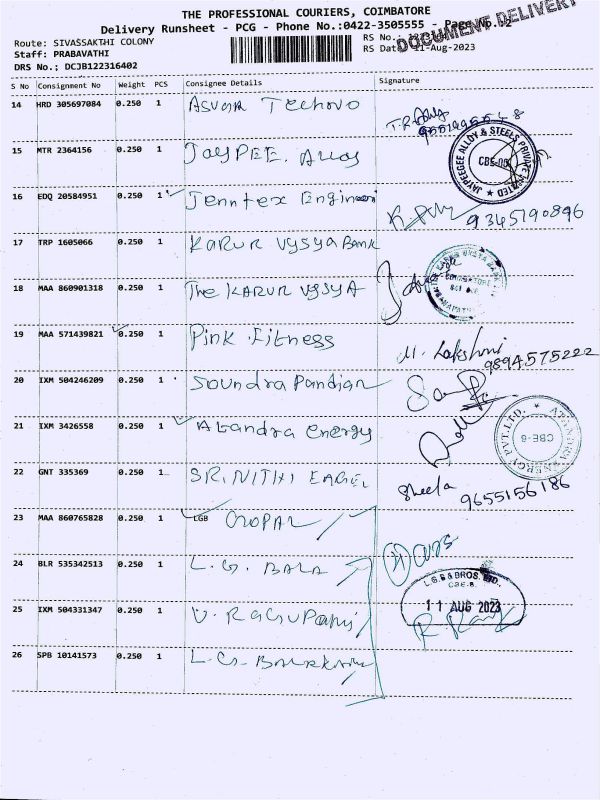 THE PROFESSIONAL COURIERS, COIMBATORE
Delivery Runsheet - PCG - Phone No.:0422-3505555 - Page No.
DOCUMENT DELIVERY
Route: SIVASSAKTHI COLONY
RS No.:
Staff: PRABAVATHI
RS Dat 11-Aug-2023
DRS No.; DCJB122316402
S No Consignment No Weight PCS Consignee Details Signature
14 HRD 305697084 0.250 1
15 MTR 2364156 0.250 1 JAYPEE. Alloy
JAYPEEGEE ALLOY & STEELS PRIVATE LIMITED
16 EDQ 20584951 0.250 1 Jenntex Engineeri
9345190896
17 TRP 1605066 0.250 1 KARUR VYSYA BANK
18 MAA 860901318 0.250 1 The KARUR VYSYA
19 MAA 571439821 0.250 1 Pink Fitness M. Lakshmi
9894575222
20 IXM 504246209 0.250 1 Soundra Pandian
21 IXM 3426558 0.250 1 Atandra energy
ATANDRA ENERGY PVT.LTD. CBE-6
22 GNT 335369 0.250 1 SRINITHI EAGEL Sheela 9655156186
23 MAA 860765828 0.250 1 LGB GOPAL
24 BLR 535342513 0.250 1 L.G. BALA
L.G.B & BROS. LTD.
CBE-6.
11 AUG 2023
25 IXM 504331347 0.250 1 V. RAGUPathi
26 SPB 10141573 0.250 1 L.G-